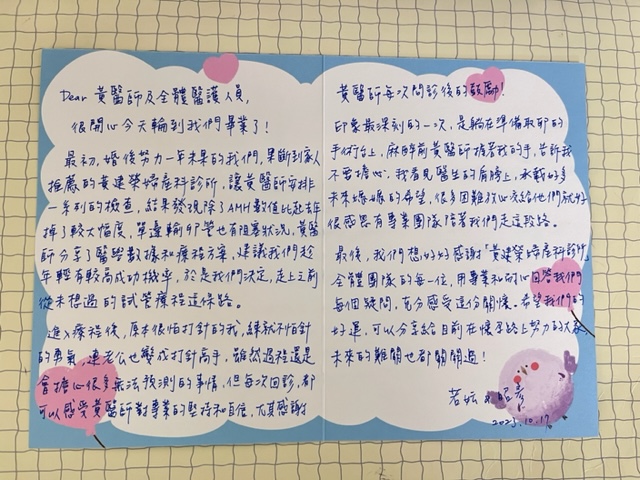 Dear 黃醫師及全體醫護人員,
很開心今天輪到我們畢業了!
最初,婚後努力一年未果的我們,果斷到家人
推薦的黃建榮婦產科診所,讓黃醫師安排
一系列的檢查,結果發現除了AMH數值比起去年
掉了較大幅度,單邊輸卵管也有阻塞狀況,黃醫
師分享了醫學數據和療程方案,建議我們趁
年輕有較高成功機率,於是我們決定,走上之前
從未想過的試管療程這條路。
進入療程後,原本很怕打針的我,練就不怕針
的勇氣,連老公也變成打針高手,雖然過程還是
會擔心很多無法預測的事情,但每次回診,都
可以感受黃醫師對專業的堅持和自信,尤其感謝
黃醫師每次問診後的鼓勵!
印象最深刻的一次,是躺在準備取卵的
手術台上,麻醉前黃醫師握著我的手,告訴我
不要擔心,我看見醫生的肩膀上,承載好多
未來媽媽的希望,很多困難放心交給他們就好
很感恩有專業團隊陪著我們走這段路。
最後,我們想好好感謝「黃建榮婦產科診所」
全體團隊的每一位,用專業和耐心回答我們
每個疑問,充分感受這份關懷。希望我們的
好運,可以分享給目前在懷孕路上努力的大家
未來的難關也都關關過!
若妘 昭彥
2025.10.17